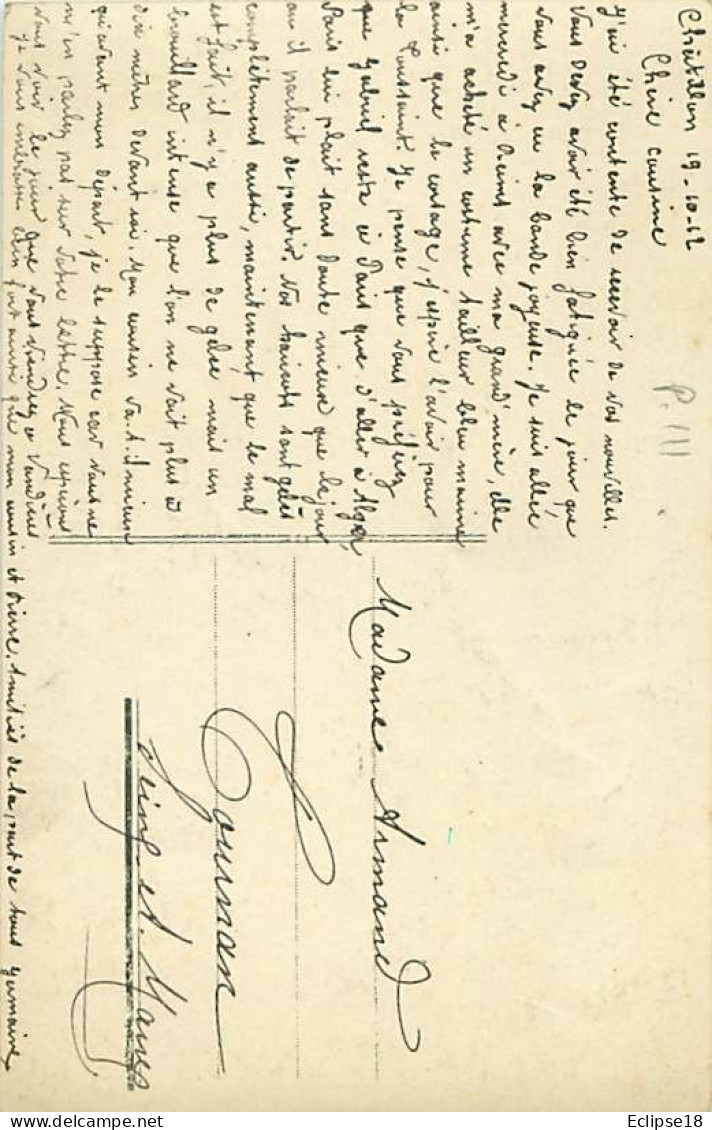 Châtillon 19-10-12
Chère Cousine
J'ai été contente de recevoir de vos nouvelles.
Vous devez avoir été bien fatiguée le jour que
vous avez eu la bande joyeuse. Je suis allée
mercredi à Reims avec ma grand'mère, elle
m'a acheté un costume tailleur bleu marine
ainsi que le corsage, j'espère l'avoir pour
la Toussaint. Je pense que vous préférez
que Gabriel reste à Paris que d'aller à Alger,
Paris lui plait sans doute mieux que le jour
où il parlait de partir. Nos haricots sont gelés
complètement aussi, maintenant que le mal
est fait, il n'y a plus de gelée mais un
brouillard intense que l'on ne voit plus à
dix mètres devant soi. Mon cousin va-t-il mieux
qu'avant mon départ, je le suppose car vous ne
m'en parlez pas sur votre lettre. Nous espérons
vous voir le jour que vous viendrez à Vandières
Je vous embrasse bien fort ainsi que mon cousin et Pierre. Amitiés de la part de tous Germaine
P. 111
Madame Armand
Tournan
Seine et Marne
© Eclipse18